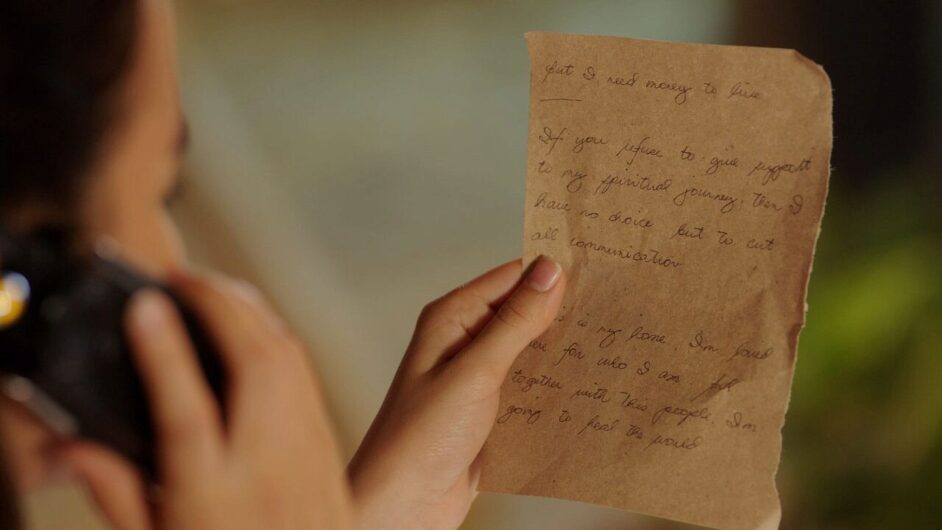 but I need money to live
If you refuse to give support
to my spiritual journey, then I
have no choice but to cut
all communication
is my home. I'm loved
for who I am
together with this people. I'm
going to heal the world